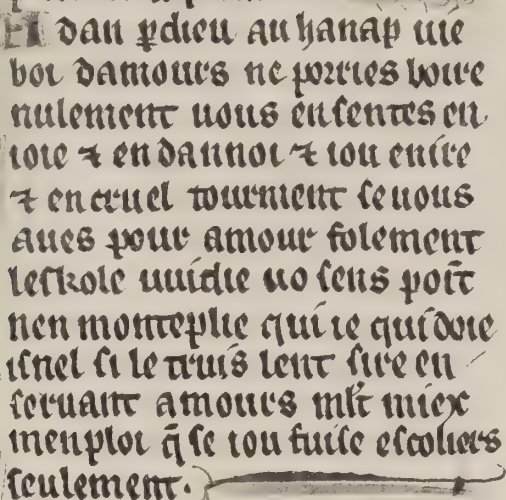 dan pdieu au hanap uie
boi damours ne porries boire
nulement uous ensentes en
ioie ⁊ en dannoi ⁊ iou en ire
⁊ en cruel tourment se uous
aues pour amour folement
leskole uuidie uo sens poīt
nen monteplie qui ie quidoie
isnel si le truis lent sire en
seruant amours mlt miex
menploi q̄ se iou fuisse escoliers
seulement.